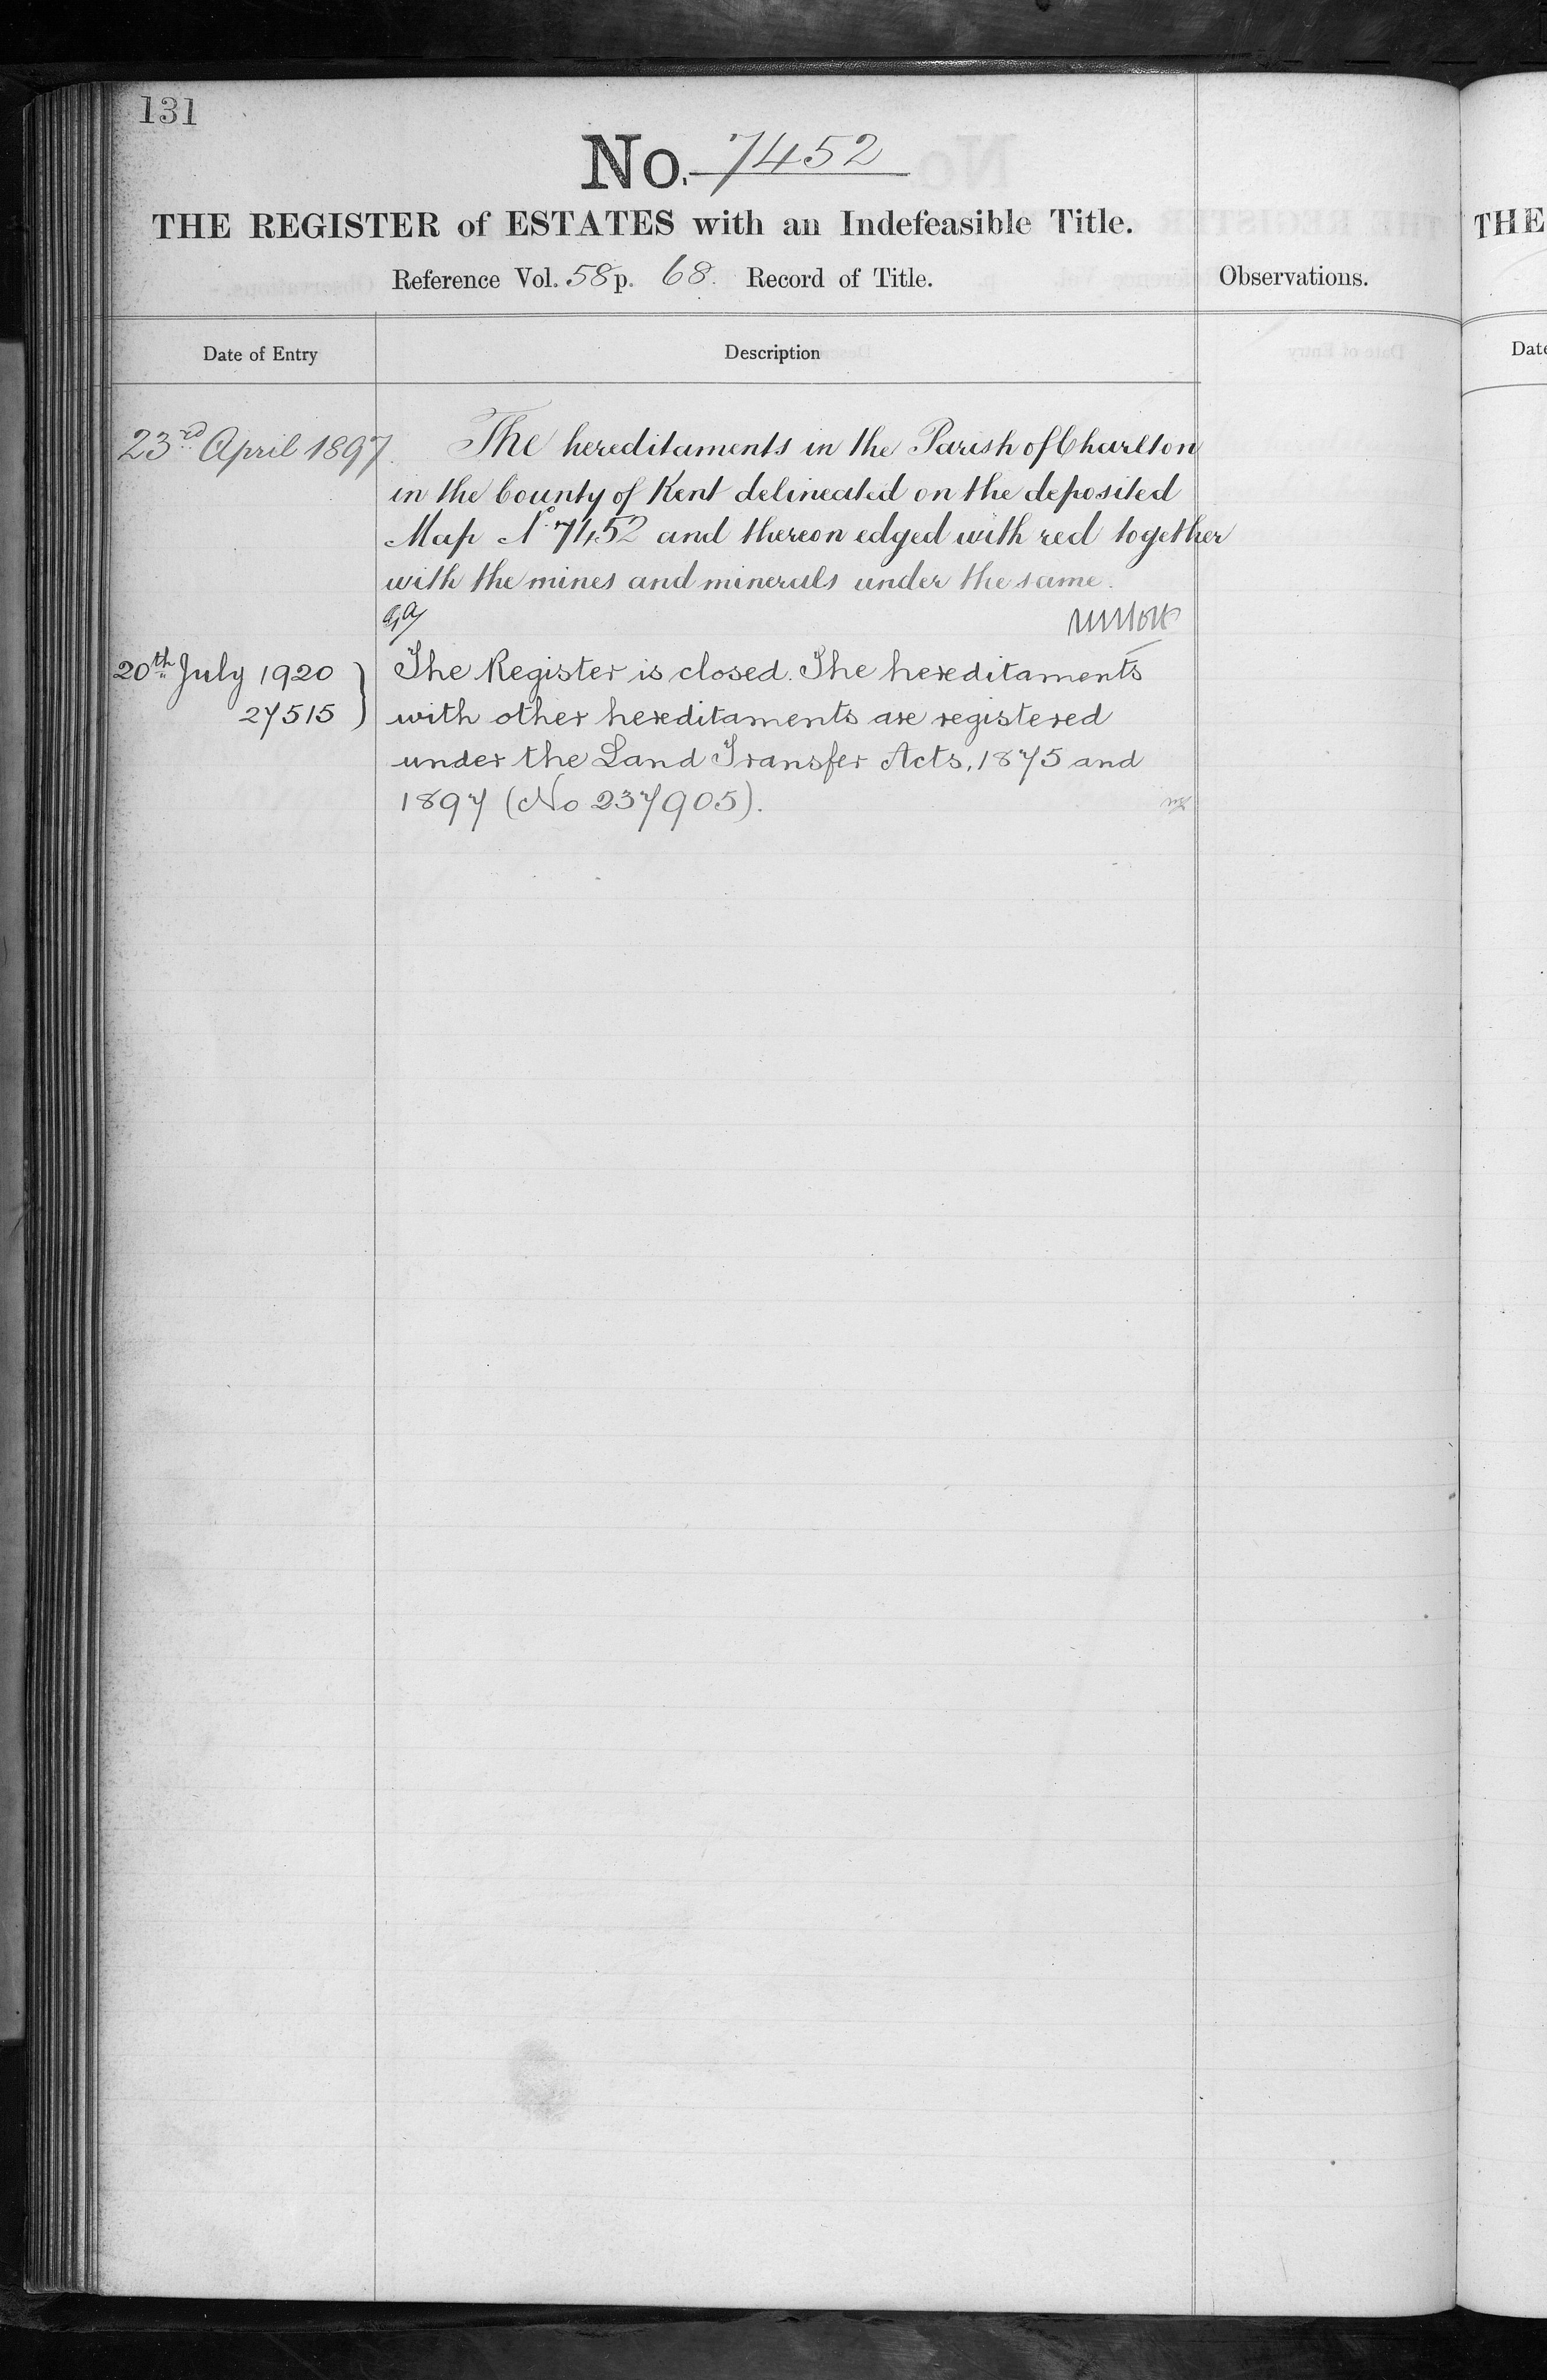 131
No. 7452
THE REGISTER of ESTATES with an Indefeasible Title.
Reference Vol. 58 p. 68. Record of Title.
Observations.
Date of Entry
Description
23rd April 1897.
The hereditaments in the Parish of Charlton
in the County of Kent delineated on the deposited
Map No 7452 and thereon edged with red together
with the mines and minerals under the same.
20th July 1920
27515
The Register is closed. The hereditaments
with other hereditaments are registered
under the Land Transfer Acts, 1875 and
1897 (No 237905).
THE
Date